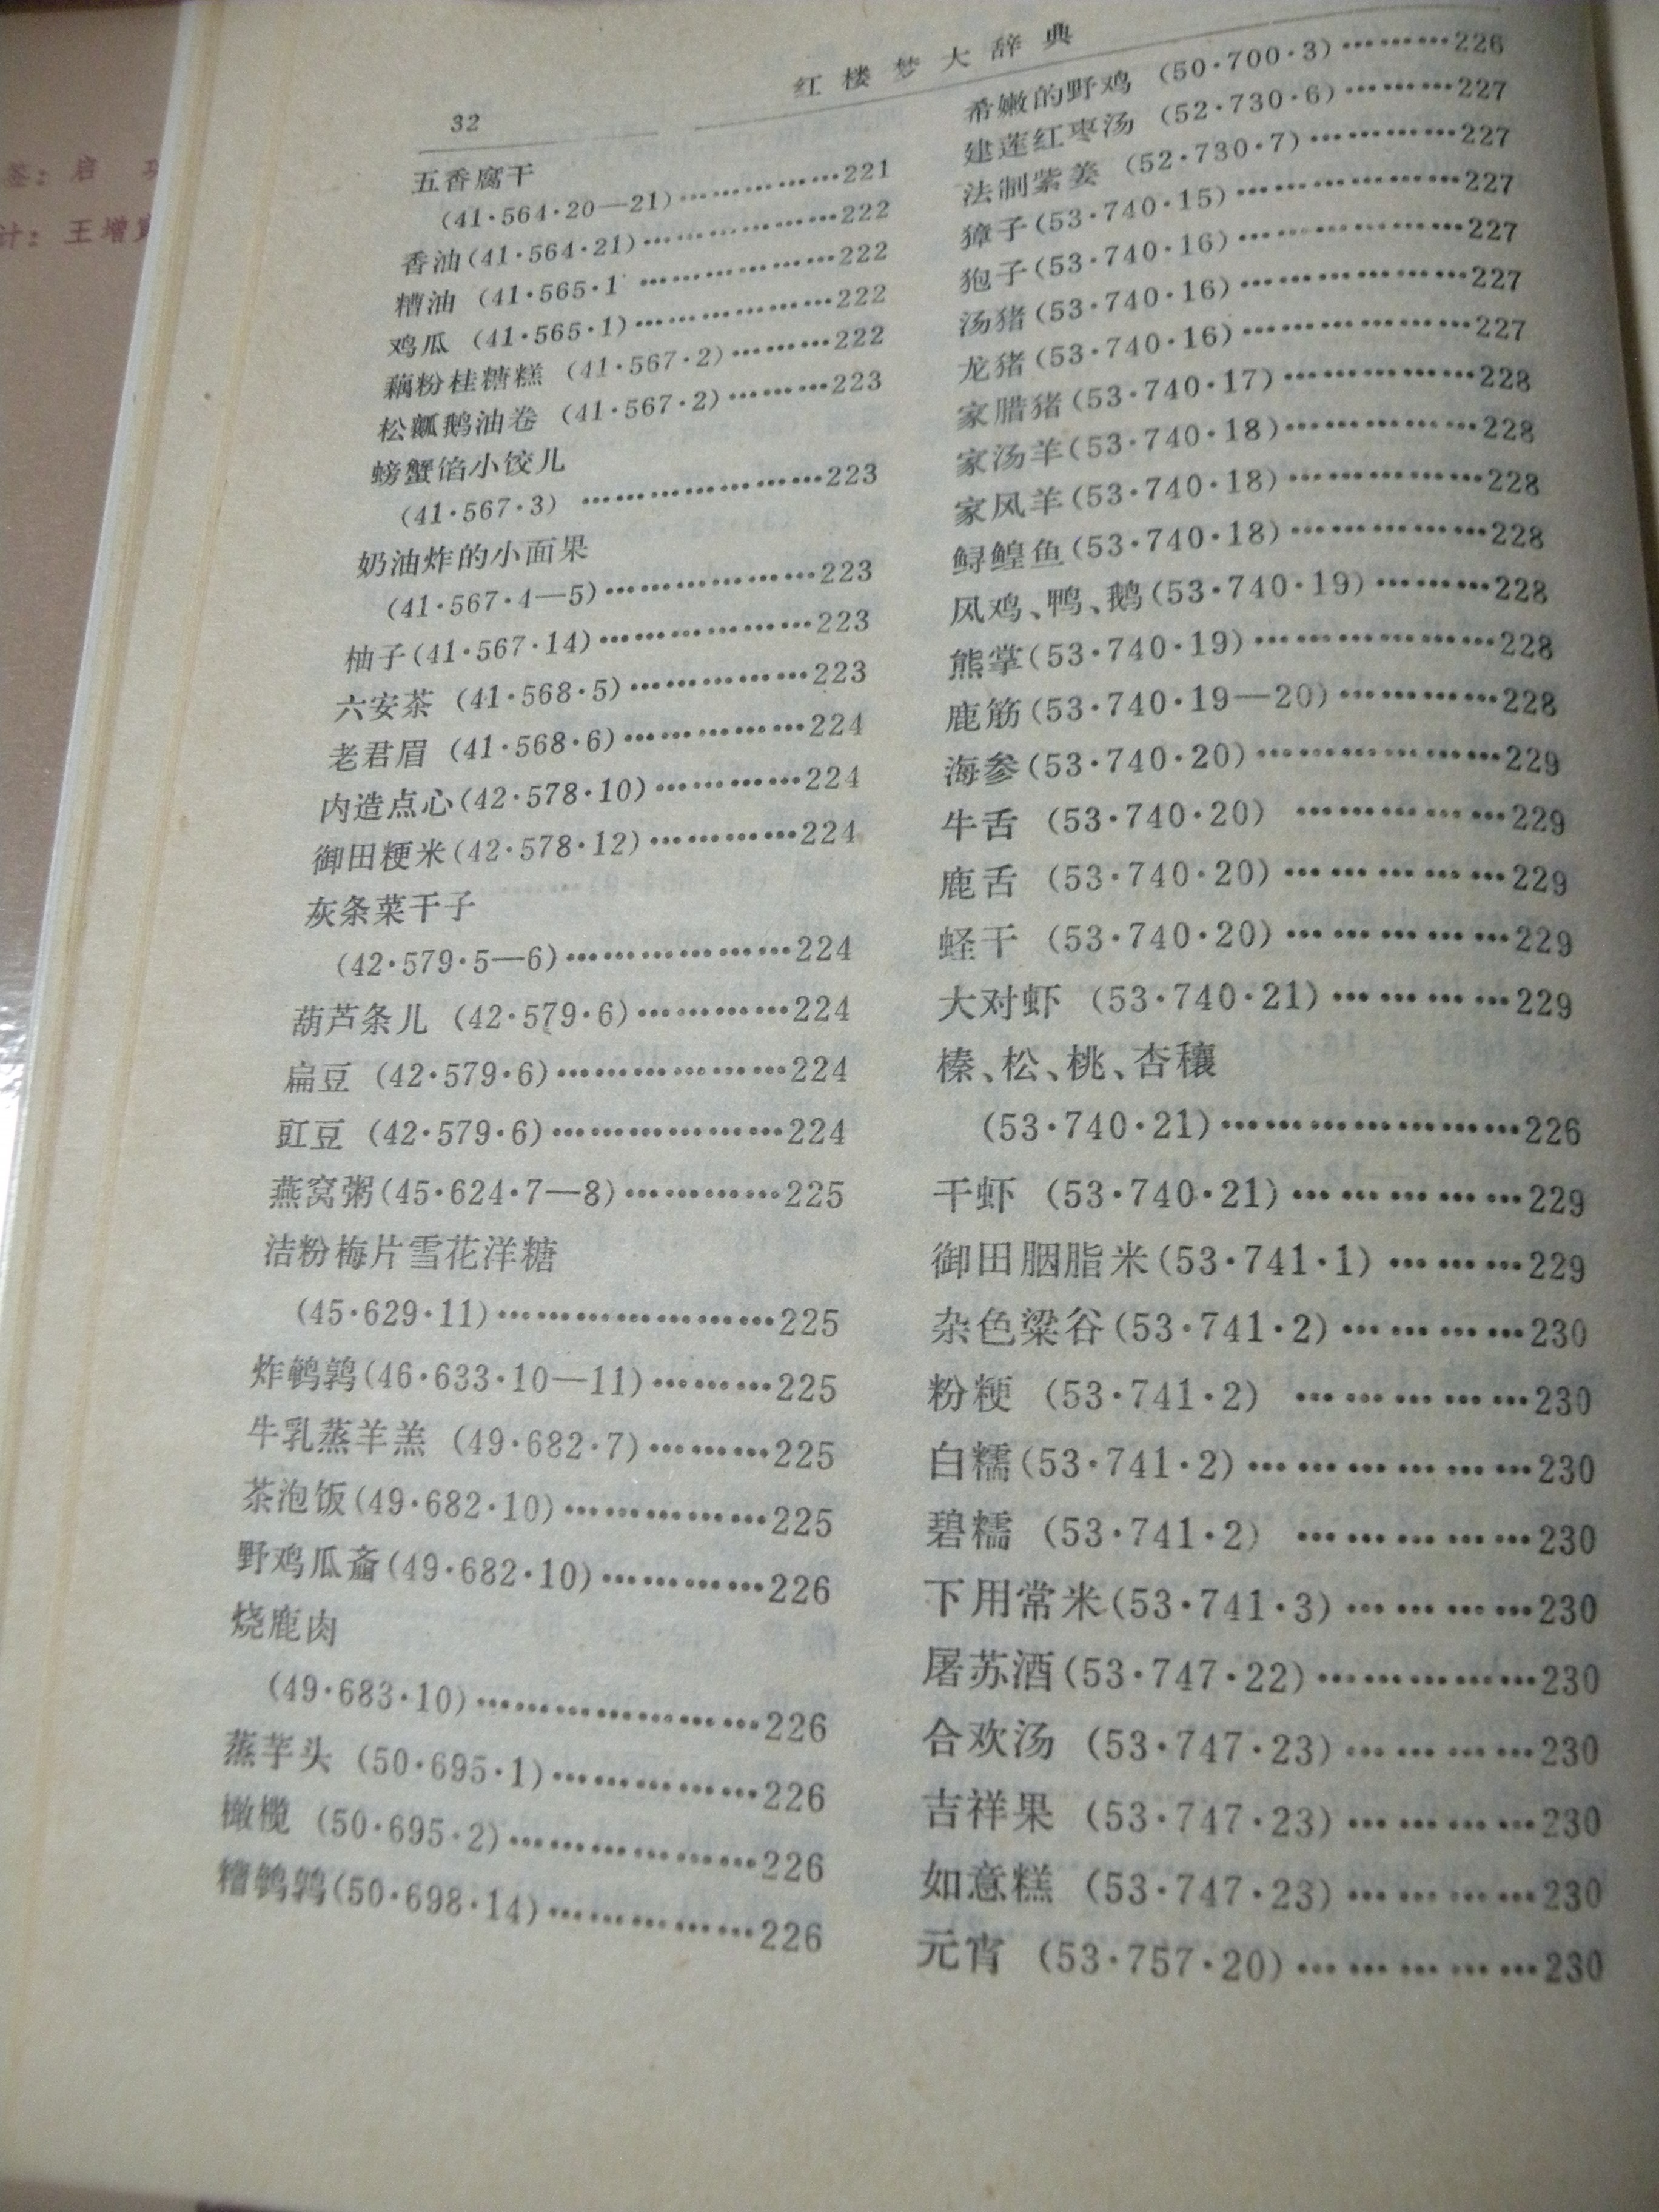 签：启
计：王增
32
红楼梦大辞典
五香腐干
(41·564·20—21)………………221
香油(41·564·21)………………222
糟油 (41·565·1 ………………222
鸡瓜 (41·565·1)………………222
藕粉桂糖糕 (41·567·2)………222
松瓤鹅油卷 (41·567·2)………223
螃蟹馅小饺儿
(41·567·3) …………………223
奶油炸的小面果
(41·567·4—5)………………223
柚子(41·567·14)………………223
六安茶 (41·568·5)……………223
老君眉 (41·568·6)……………224
内造点心(42·578·10)…………224
御田粳米(42·578·12)…………224
灰条菜干子
(42·579·5—6)………………224
葫芦条儿 (42·579·6)…………224
扁豆 (42·579·6)………………224
豇豆 (42·579·6)………………224
燕窝粥(45·624·7—8)…………225
洁粉梅片雪花洋糖
(45·629·11)…………………225
炸鹌鹑(46·633·10—11)………225
牛乳蒸羊羔 (49·682·7)………225
茶泡饭(49·682·10)……………225
野鸡瓜齑(49·682·10)…………226
烧鹿肉
(49·683·10)…………………226
蒸芋头 (50·695·1)……………226
橄榄 (50·695·2)………………226
糟鹌鹑(50·698·14)……………226
希嫩的野鸡 (50·700·3)………226
建莲红枣汤 (52·730·6)………227
法制紫姜 (52·730·7)…………227
獐子(53·740·15)………………227
狍子(53·740·16)………………227
汤猪(53·740·16)………………227
龙猪(53·740·16)………………227
家腊猪(53·740·17)……………228
家汤羊(53·740·18)……………228
家风羊(53·740·18)……………228
鲟鳇鱼(53·740·18)……………228
风鸡、鸭、鹅(53·740·19)………228
熊掌(53·740·19)………………228
鹿筋(53·740·19—20)…………228
海参(53·740·20)………………229
牛舌 (53·740·20) ……………229
鹿舌 (53·740·20)……………229
蛏干 (53·740·20)……………229
大对虾 (53·740·21)…………229
榛、松、桃、杏穰
(53·740·21)…………………226
干虾 (53·740·21)……………229
御田胭脂米(53·741·1) ………229
杂色粱谷(53·741·2)…………230
粉粳 (53·741·2) ……………230
白糯(53·741·2)………………230
碧糯 (53·741·2) ……………230
下用常米(53·741·3)…………230
屠苏酒(53·747·22)……………230
合欢汤 (53·747·23)…………230
吉祥果 (53·747·23)…………230
如意糕 (53·747·23)…………230
元宵 (53·757·20)……………230